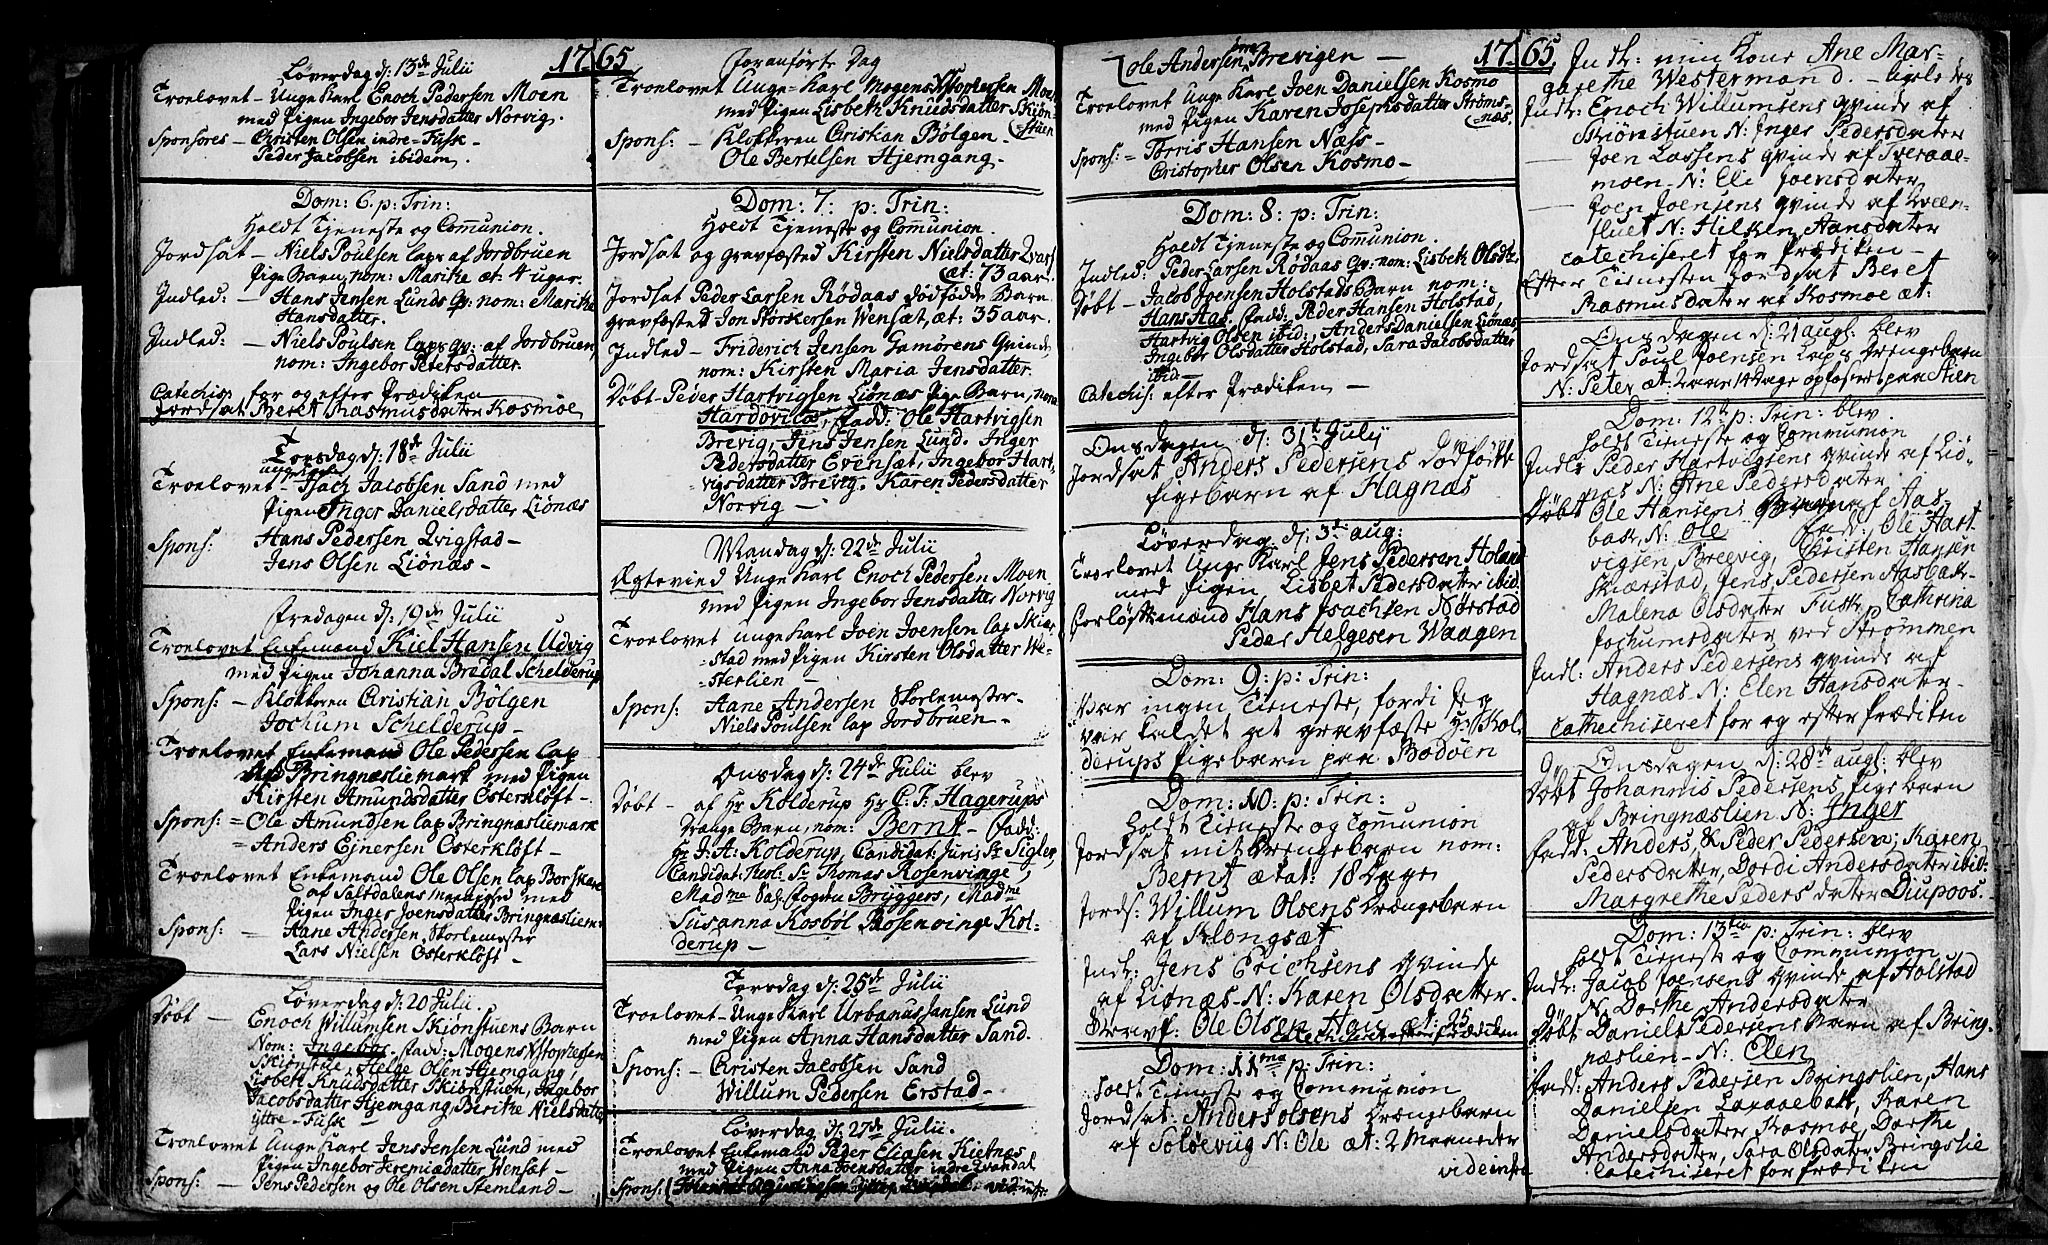 1765
Løverdag d: 13de Julii
Troelovet - Unge Karl Enoch Pedersen Moen
med Pigen Ingebor Jensdatter Norvig.
Sponsores - Christen Olsen indre-Fusk -
Peder Jacobsen ibidem.
Dom: 6. p: Trin:
Holdt Tjeneste og Communion.
Jordsat - Niels Poulsen lap af Jordbruen
Pige Barn, nom: Marike æt: 4 uger.
Indled: - Hans Jensen Lunds Qv: nom: Marike
Hansdatter.
Indled: - Niels Poulsen laps Qv: af Jordbruen,
nom: Ingebor Petersdatter.
Catechis: for og efter Prædiken
Jordsat Beret Rasmusdatter Kosmoe
Torsdag d: 18de Julii
Troelovet - ungkarl Isach Jacobsen Sand med
Pigen Inger Danielsdatter Liønæs
Spons: Hans Pedersen Qvigstad -
Jens Olsen Liønæs -
Fredagen d: 19de Julii
Troelovet Enkemand Kiel Hansen Udvig
med Pigen Johanna Bredal Schelderup
Spons: - Klokkeren Cristian Bölgen
Jochum Schelderup -
Troelovet Enkemand Ole Pedersen lap
Bringnæsliemark med Pigen
Kirsten Amundsdatter Osterkløft -
Spons: = Ole Amundsen lap Bringnæsliemark
= Anders Ejnersen Osterkløft -
Troelovet Enkemand Ole Olsen lap Borskare
af Saltdalens menighed med
Pigen Inger Joensdatter Bringnæsliem:
Spons: - Aane Andersen Skorlemester
Lars Nielsen Osterkløft -
Løverdag d: 20 Julii.
Døbt - Enoch Willumsen Skiønstuens Barn
Nom: Ingebor. fadd: Mogens Xstophersen
Skionstue, Helge Olsen Hjemgang,
Lisbeth Knudsdatter Skiønstuen, Ingebor
Jacobsdatter Hjemgang, Berithe Nielsdatter
yttre-Fusk -
Troelovet Unge Karl Jens Jensen Lund med
Pigen Ingebor Jeremiædatter Wensæt -
Spons: - Jens Pedersen og Ole Olsen Stemland -
foranførte Dag
Troelovet Unge-Karl Mogens Xstophersen Moen
med Pigen Lisbeth Knudsdatter Skiøn-
stuen
Spons: - Klokkeren Cristian Bölgen -
Ole Bertelsen Hjemgang -
Dom: 7: p: Trin:
Holdt Tjeneste og Communion.
Jordsat og gravfæsted Kirsten Nielsdatter Qvarf
æt: 73 aar.
Jordsat Peder Larsen Rödaas dödfödde Barn
gravfæsted Jon Størkersen Wensæt, æt: 35 aar.
Indled - Friderich Jensen Gamørens Qvinde
nom: Kirsten Maria Jensdatter.
Døbt - Peder Hartvigsen Liönæs Pige Barn, nom:
Hardovica, fadd: Ole Hartvigsen
Brevig, Jens Jensen Lund. Inger
Pedersdatter Evensæt, Ingebor Hart-
vigsdatter Brevig. Karen Pedersdatter
Norvig -
Mandag d: 22de Julii
Ægtevied Unge Karl Enoch Pedersen Moen
med Pigen Ingebor Jensdatter Norvig
Troelovet unge Karl Joen Joensen lap Skiær-
stad med Pigen Kirsten Olsdatter We-
sterlien -
Spons: Aane Andersen Skorlemester -
Niels Poulsen lap Jordbruen -
Onsdag d: 24de Julii blev
Døbt - af Hr Kolderup Hr C. F. Hagerups
Drænge Barn, nom: Bernt - fadd:
Hr J: A: Kolderup, Candidat: Juris Sr Sigler,
Candidat: Theol: Sr Thomas Rosenvinge,
Madme Sal: Fogden Bryggers, Madme
Susanna Kosböl Rosenvinge Kol-
derup -
Torsdag d: 25de Julii
Troelovet - Unge Karl Urbanus Jansen Lund
med Pigen Anna Hansdatter Sand.
Spons: - Christen Jacobsen Sand
Willum Pedersen Erstad -
Løverdag d: 27de Julii.
Troelovet Enkemand Peder Eliasen Kietnæs
med Pigen Anna Joensdatter indre Qvandal
Spons:
1765
Ole Andersen Brevigen -
Troelovet Unge Karl Joen Danielsen Kosmo
med Pigen Karen Josephsdatter Strøms-
næs.
Spons: = Torris Hansen Næss -
Cristopher Olsen Kosmo -
Dom: 8: p: Trin:
Holdt Tjeneste og Communion.
Indled: Peder Larsen Rödaas Qv: nom: Lisbeth Olsdtr.
Døbt - Jacob Joensen Holstads Barn nom:
Hans Aas. fadd: Peder Hansen Holstad,
Hartvig Olsen ibid:, Anders Danielsen Liönæs,
Ingebor Olsdatter Holstad, Sara Jacobsdatter
ibid -
Catechis: efter Prædiken -
Onsdagen d: 31t July
Jordsat Anders Pedersens dødføtte
Pigebarn af Hagnæs
Løverdag d: 3de aug:
Troelovet Unge Karl Jens Pedersen Holand
med Pigen Lisbet Pedersdater ibid.
Forløftsmænd Hans Isachsen Nørstad
Peder Helgesen Waagen
Dom: 9: p: Trin:
Var ingen Tieneste, fordi Jeg
var kaldet at gravfæste Hr Kol
derups Pigebarn paa Bodøen
Dom: 10: p: Trin:
Holdt Tieneste og Communion
Jordsat mit Drengebarn nom:
Bernt ætat: 18 Dage
Jords: Willum Olsens Drængebarn
af Klongsæt
Indl: Jens Erichsens Qvinde
af Liønæs - N: Karen Olsdatter.
Gravf: Ole Olsen æt: 25
Catechiseret efter Prædiken
Dom: 11ma p: Trin:
Holdt Tieneste og Communion
Jordsat: Anders Olsens Drængebarn
af Soløevig N: Ole æt: 2 Maaneder
vide infra
Indl: min Kone Ane Mar-
garethe Westermand. -
Indl: Enoch Willumsens Qvinde af
Skiønstuen N: Inger Pedersdater
- Joen Lassens Qvinde af Tveraae-
moen - N: Ele Joensdater
- Joen Joensens Qvinde af Qvæn-
fluet N: Hilken Hansdater
Catechiseret før Prædiken -
Efter Tienesten Jordsat Beret
Rasmusdater af Kosmoe æt:
Onsdagen d: 21 augl: blev
Jordsat Poul Joensen Laps Drengebarn
N: Peter æt: 2 aar 14 Dage opføstret paa Stien
Dom: 12te p: Trin: blev
Holdt Tieneste og Communion
Indl: Peder Hartvigsens Qvinde af Liø-
næs N: Ane Pedersdater
Døbt Ole Hansens af Aas-
bak, N: Ole fadd: Ole Hart
vigsen, Breevig, Christen Hansen
Skiærstad, Jens Pedersen Aasbak
Malena Olsdater Fusk, Cathrina
Jochumsdater ved Strømmen
Indl: Anders Pedersens Qvinde af
Hagnæs N: Elen Hansdater -
Catechiseret for og efter Prædiken
Onsdagen d: 28de augl: blev
Døbt Johannis Pedersens Pigebarn
af Bringnæslien N: Inger
fadd: Anders, & Peder Pedersen, Karen
Pedersdater, Dordi Andersdater ibid:
Margrethe Pedersdater Diupoos.
Dom: 13tia p: Trin: blev
Holdt Tieneste og Communion
Indl: Jacob Joensens Qvinde af Holstad
N: Dorthe Andersdater
Døbt Daniels Pedersens Barn af Bring-
næslien - N: Elen
fadd: Anders Pedersen Bringslien, Hans
Danielsen Laxaaebak, Karen
Danielsdater Kosmoe, Dorthe
Andersdater, Sara Olsdater Bringslie
Catechiseret for Prædiken